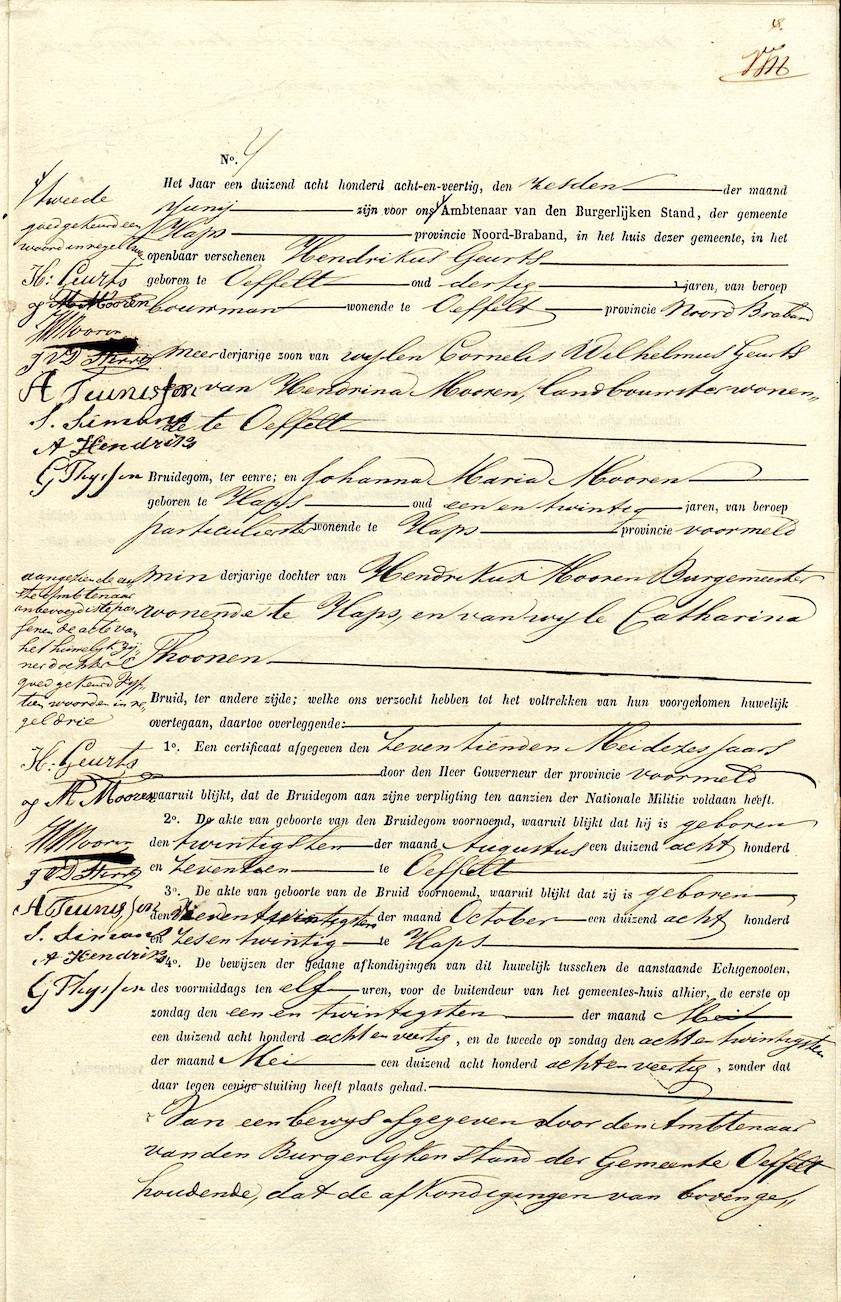 8.
N°. 4
Het Jaar een duizend acht honderd acht-en-veertig, den zesden der maand
Junij zijn voor ons Ambtenaar van den Burgerlijken Stand, der gemeente
Haps provincie Noord-Braband, in het huis dezer gemeente, in het
openbaar verschenen Hendrikus Geurts
geboren te Oeffelt oud dertig jaren, van beroep
bouwman wonende te Oeffelt provincie Noord Braband
meer derjarige zoon van wylen Cornelis Wilhelmus Geurts
en van Hendrina Mooren, landbouwster wonen„
de te Oeffelt
Bruidegom, ter eenre; en Johanna Maria Mooren
geboren te Haps oud een en twintig jaren, van beroep
particulierster wonende te Haps provincie voormeld
min derjarige dochter van Hendrikus Mooren Burgemeester
wonende te Haps, en van wyle Catharina
Thoonen
Bruid, ter andere zijde; welke ons verzocht hebben tot het voltrekken van hun voorgenomen huwelijk
overtegaan, daartoe overleggende:
1°. Een certificaat afgegeven den zeventienden Mei dezes jaars
door den Heer Gouverneur der provincie voormeld
waaruit blijkt, dat de Bruidegom aan zijne verpligting ten aanzien der Nationale Militie voldaan heeft.
2°. De akte van geboorte van den Bruidegom voornoemd, waaruit blijkt dat hij is geboren
den twintigsten der maand Augustus een duizend acht honderd
en zeventien te Oeffelt
3°. De akte van geboorte van de Bruid voornoemd, waaruit blijkt dat zij is geboren
den twintigsten der maand October een duizend acht honderd
en zesentwintig te Haps
4°. De bewijzen der gedane afkondigingen van dit huwelijk tusschen de aanstaande Echtgenooten,
des voormiddags ten elf uren, voor de buitendeur van het gemeentes-huis alhier, de eerste op
zondag den een en twintigsten der maand Mei
een duizend acht honderd acht en veertig, en de tweede op zondag den acht en twintigsten
der maand Mei een duizend acht honderd acht en veertig, zonder dat
daar tegen eenige stuiting heeft plaats gehad.
Van een bewys afgegeven door den Ambtenaar
van den Burgerlyken stand der Gemeente Oeffelt
houdende, dat de afkondigingen van bovenge„
tweede
goedgekeurd een
woord in regel
H: Geurts
M Mooren
HMooren
J VD
A Teunissen
S. Simons
A Hendriks
G Thyssen
aangezien de
Ambtenaar
onbevoegd is te pas
seren de acte van
het huwelyk zij
ner dochter
goedgekeurd vyf
tien woorden in re
gel drie
H: Geurts
M Mooren
HMooren
J VD
A Teunissen
S. Simons
A Hendriks
G Thyssen